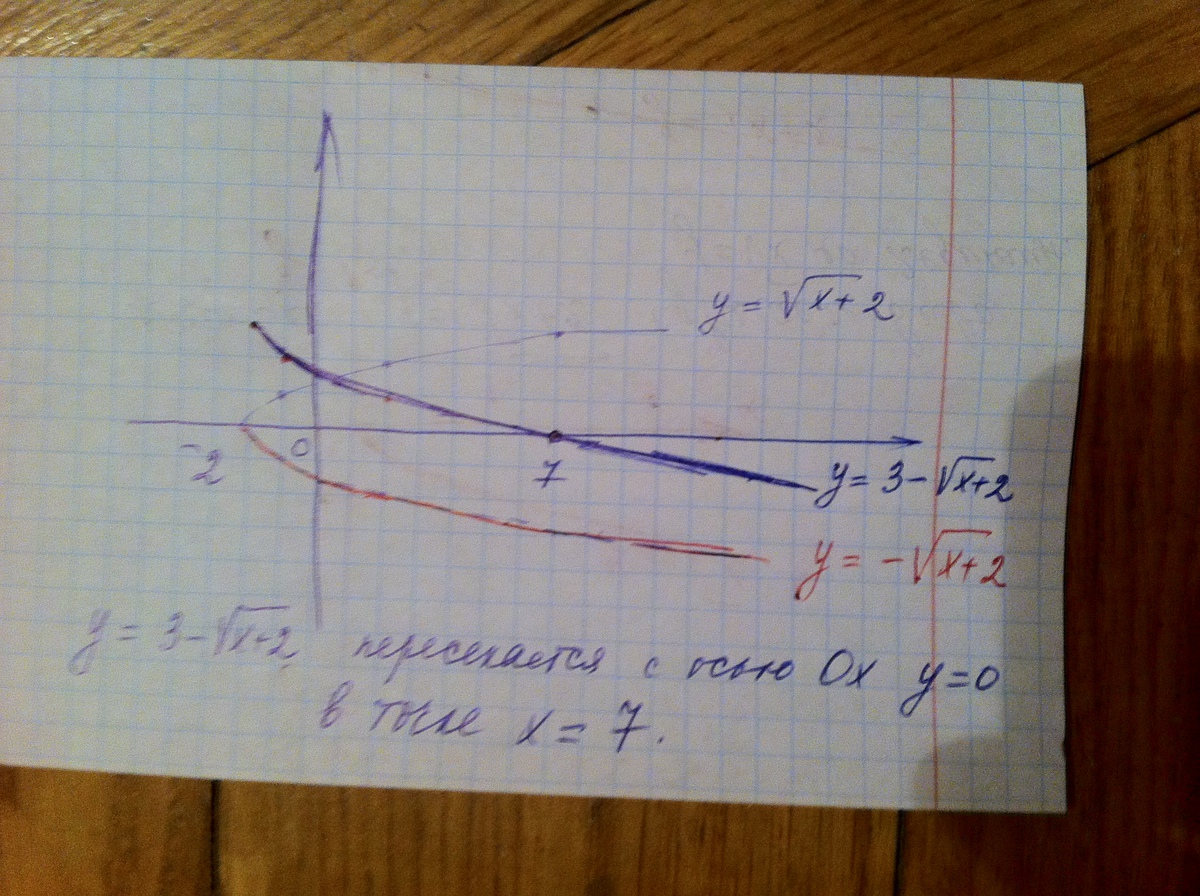 y = √x+2
-2
0
7
y = 3-√x+2
y = -√x+2
y = 3-√x+2 пересекается с осью Ox y=0
в точке x = 7.